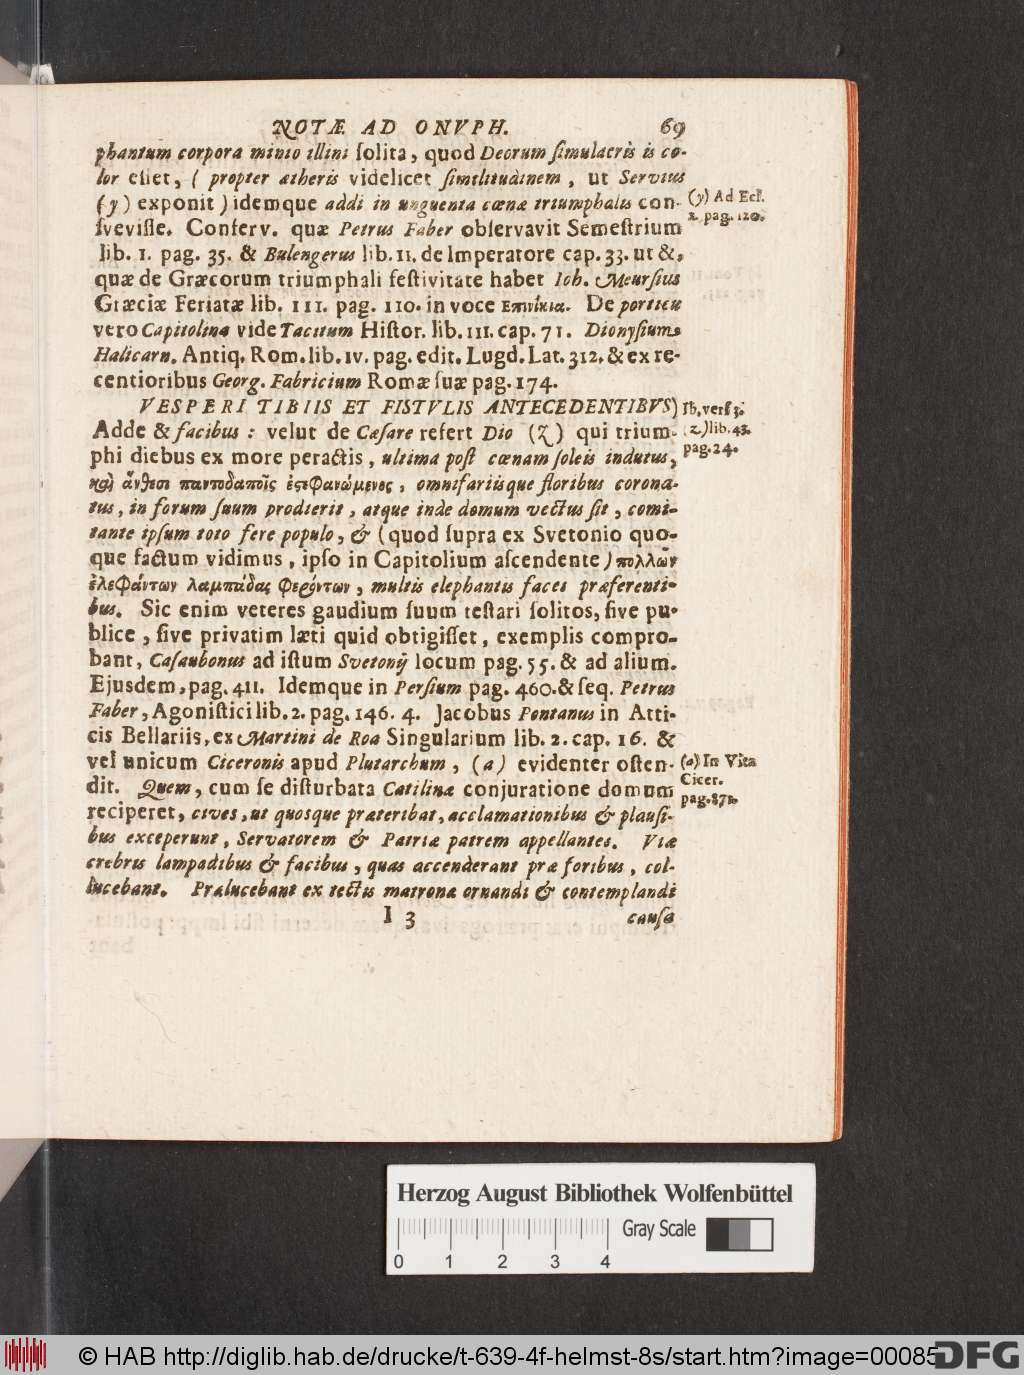 NOTÆ AD ONVPH. 69
phantum corpora minio illini ſolita, quod Deorum ſimulacris is co-
lor eſſet, ( propter ætheris videlicet ſimilitudinem, ut Servius
(y) exponit ) idemque addi in unguenta cœnæ triumphalis con-
ſveviſſe. Conſerv. quæ Petrus Faber obſervavit Semeſtrium
lib. I. pag. 35. & Bulengerus lib. II. de Imperatore cap. 33. ut &,
quæ de Græcorum triumphali feſtivitate habet Ioh. Meurſius
Græciæ Feriatæ lib. III. pag. 110. in voce Επινίκια. De porticu
vero Capitolina vide Tacitum Hiſtor. lib. III. cap. 71. Dionyſium
Halicarn. Antiq. Rom. lib. IV. pag. edit. Lugd. Lat. 312. & ex re-
centioribus Georg. Fabricium Romæ ſuæ pag. 174.
VESPERI TIBIIS ET FISTVLIS ANTECEDENTIBVS)
Adde & facibus : velut de Cæſare refert Dio (z) qui trium-
phi diebus ex more peractis, ultima poſt cœnam ſoleis indutus,
καὶ ἄνθεσι παντοδαποῖς ἐστεφανώμενος, omnifariisque floribus corona-
tus, in forum ſuum prodierit, atque inde domum vectus ſit, comi-
tante ipſum toto fere populo, & (quod ſupra ex Svetonio quo-
que factum vidimus, ipſo in Capitolium aſcendente) πολλῶν
ἐλεφάντων λαμπάδας φερόντων, multis elephantis faces præferenti-
bus. Sic enim veteres gaudium ſuum teſtari ſolitos, ſive pu-
blice, ſive privatim læti quid obtigiſſet, exemplis compro-
bant, Caſaubonus ad iſtum Svetonij locum pag. 55. & ad alium.
Ejusdem, pag. 411. Idemque in Perſium pag. 460. & ſeq. Petrus
Faber, Agoniſtici lib. 2. pag. 146. 4. Jacobus Pontanus in Atti-
cis Bellariis, ex Martini de Roa Singularium lib. 2. cap. 16. &
vel unicum Ciceronis apud Plutarchum, (a) evidenter oſten-
dit. Quem, cum ſe diſturbata Catilinæ conjuratione domum
reciperet, cives, ut quosque præteribat, acclamationibus & plauſi-
bus exceperunt, Servatorem & Patriæ patrem appellantes. Viæ
crebris lampadibus & facibus, quas accenderant præ foribus, col-
lucebant. Prælucebant ex tectis matronæ ornandi & contemplandi
I 3 cauſa
(y) Ad Ecl.
pag. 120.
Ib. verſ
(z) lib. 43.
pag. 24.
(a) In Vita
Cicer.
pag. 871.
Herzog August Bibliothek Wolfenbüttel
Gray Scale
0 1 2 3 4
© HAB http://diglib.hab.de/drucke/t-639-4f-helmst-8s/start.htm?image=00085
DFG